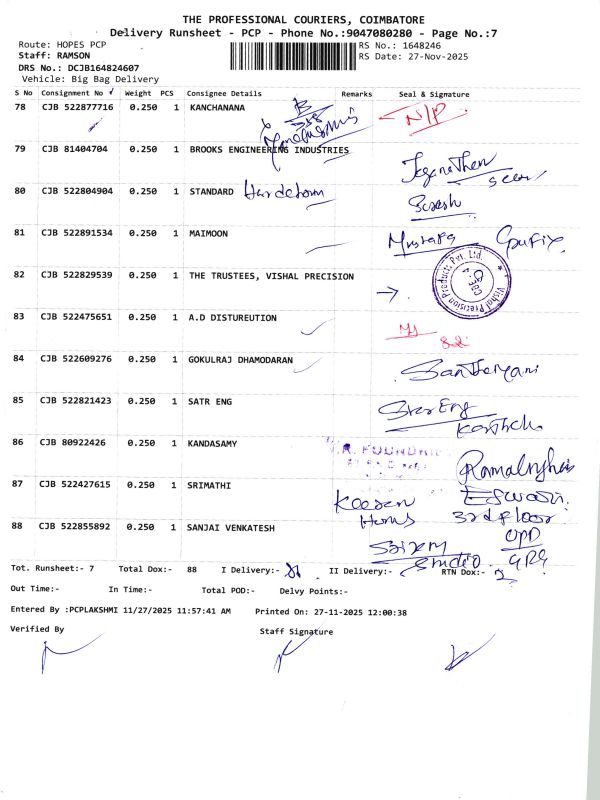 THE PROFESSIONAL COURIERS, COIMBATORE
Delivery Runsheet - PCP - Phone No.:9047080280 - Page No.:7
Route: HOPES PCP
RS No.: 1648246
Staff: RAMSON
RS Date: 27-Nov-2025
DRS No.: DCJB164824607
Vehicle: Big Bag Delivery
S No Consignment No Weight PCS Consignee Details Remarks Seal & Signature
78 CJB 522877716 0.250 1 KANCHANANA
79 CJB 81404704 0.250 1 BROOKS ENGINEERING INDUSTRIES
80 CJB 522804904 0.250 1 STANDARD Suresh
81 CJB 522891534 0.250 1 MAIMOON
82 CJB 522829539 0.250 1 THE TRUSTEES, VISHAL PRECISION
Vishal Precision Products Pvt. Ltd.
83 CJB 522475651 0.250 1 A.D DISTUREUTION
84 CJB 522609276 0.250 1 GOKULRAJ DHAMODARAN
85 CJB 522821423 0.250 1 SATR ENG
86 CJB 80922426 0.250 1 KANDASAMY
87 CJB 522427615 0.250 1 SRIMATHI
3rd floor
88 CJB 522855892 0.250 1 SANJAI VENKATESH
Studio
Tot. Runsheet:- 7 Total Dox:- 88 I Delivery:- II Delivery:- RTN Dox:-
Out Time:- In Time:- Total POD:- Delvy Points:-
Entered By :PCPLAKSHMI 11/27/2025 11:57:41 AM Printed On: 27-11-2025 12:00:38
Verified By Staff Signature